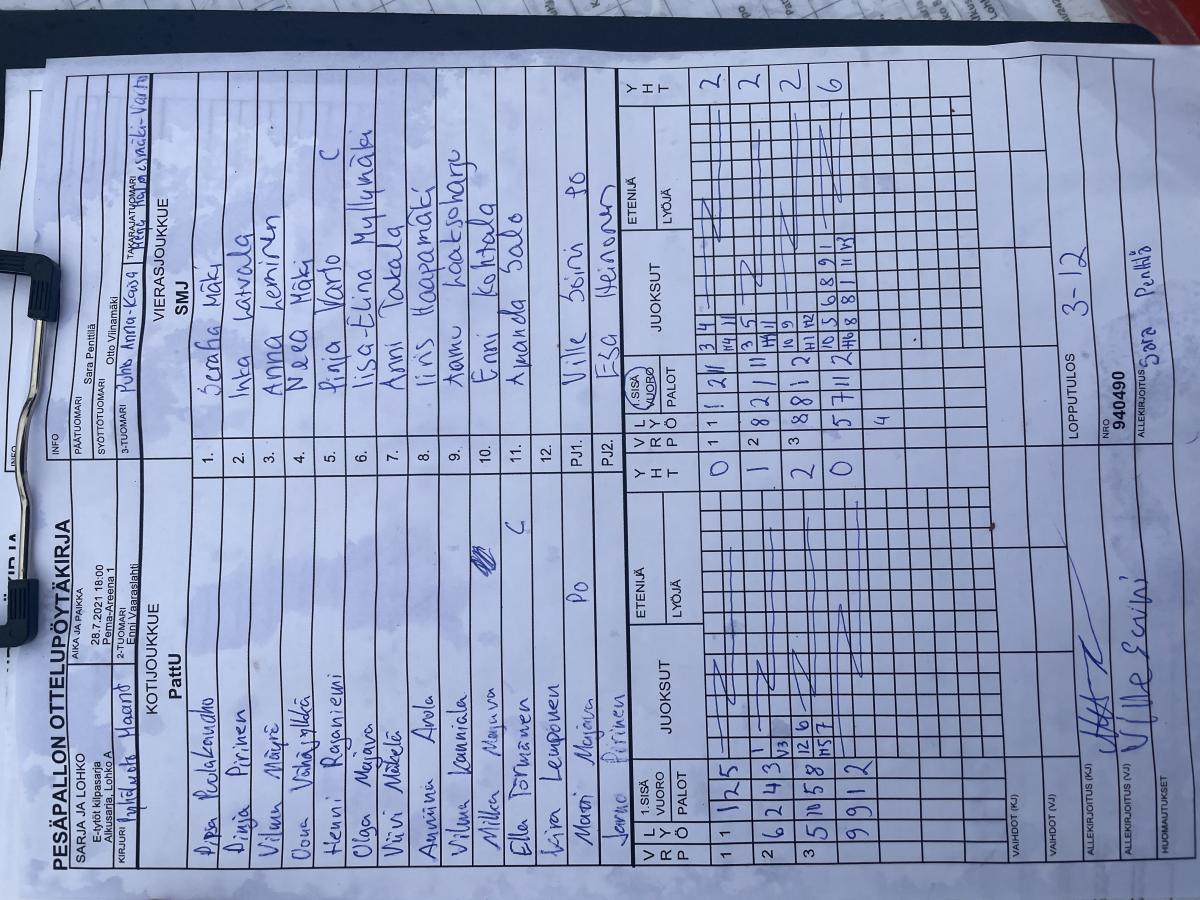 PESÄPALLON OTTELUPÖYTÄKIRJA
INFO
SARJA JA LOHKO
E-tytöt kilpasarja
Alkusarja, Lohko A
AIKA JA PAIKKA
28.7.2021 18:00
Pema-Areena 1
PÄÄTUOMARI
Sara Penttilä
SYÖTTÖTUOMARI
Otto Viinamäki
KIRJURI
2-TUOMARI
Enni Vaaraslahti
3-TUOMARI Puho Anna-Kaisa
TAKARAJATUOMARI
KOTIJOUKKUE
PattU
VIERASJOUKKUE
SMJ
1. Seraha Mäki
Dinja Pirinen 2. Inka Latvala
Vilma Mäyrä 3. Anna Leminen
Oona Vähäsylkkä 4. Neea Mäki
Henni Rajaniemi 5. Pinja Varto C
Olga Majava 6. Iisa-Elina Myllymäki
Viivi Mäkelä 7. Anni Takala
Anniina Anola 8. Iiris Haapamäki
Vilma Kanniala 9. Aamu Laaksoharju
Milka Majava 10. Enni Kohtala
Ella Törmänen C 11. Amanda Salo
Kira Lemponen 12.
Marri Majava PO PJ1. Ville Soini PO
Jarmo Pirinen PJ2. Esa Heinonen
V R P
L Y Ö
1.SISÄ VUORO
PALOT
JUOKSUT
ETENIJÄ
LYÖJÄ
Y H T
V R P
L Y Ö
1.SISÄ VUORO
PALOT
JUOKSUT
ETENIJÄ
LYÖJÄ
Y H T
1 1 1 2 5 0 1 1 1 2 11 3 4 2
H4 11
2 6 2 4 3 1 1 2 8 2 1 11 3 5 2
V3
3 5 10 5 8 12 6 2 3 8 8 1 2 10 9 2
H5 7 H1 H2
9 9 1 2 0 5 7 11 2 10 5 6 8 9 1 6
4
VAIHDOT (KJ)
VAIHDOT (VJ)
LOPPUTULOS 3-12
ALLEKIRJOITUS (KJ)
NRO
940490
ALLEKIRJOITUS (VJ)
ALLEKIRJOITUS Sara Penttilä
HUOMAUTUKSET